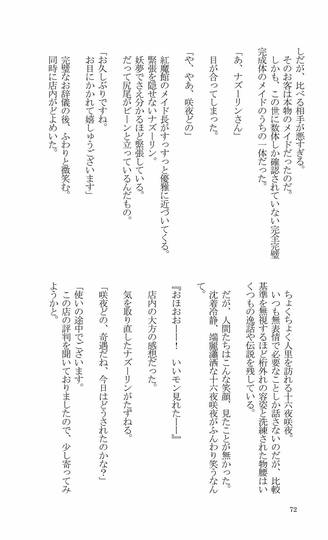 しだが、比べる相手が悪すぎる。
そのお客は本物のメイドだったのだ。
しかも、この世に数体しか確認されていない完全完璧
完成体のメイドのうちの一体だった。
「あ、ナズーリンさん」
目が合ってしまった。
「や、やあ、咲夜どの」
紅魔館のメイド長がすっすっと優雅に近づいてくる。
緊張を隠せないナズーリン。
妖夢でさえ分かるほど緊張している。
だって尻尾がピーンと立っているんだもの。
「お久しぶりですね。
お目にかかれて嬉しゅうございます」
完璧なお辞儀の後、ふわりと微笑む。
同時に店内がどよめいた。
ちょくちょく人里を訪れる十六夜咲夜。
いつも無表情で必要なことしか話さないのだが、比較
基準を無視するほど桁外れの容姿と洗練された物腰はい
くつもの逸話や伝説を残している。
だが、人間たちはこんな笑顔、見たことが無かった。
沈着冷静、端麗瀟洒な十六夜咲夜がふんわり笑うなん
て。
『おほおおーー！　いいモン見れたーー』
店内の大方の感想だった。
気を取り直したナズーリンがたずねる。
「咲夜どの、奇遇だね、今日はどうされたのかな？」
「使いの途中でございます。
この店の評判を聞いておりましたので、少し寄ってみ
ようかと。
72